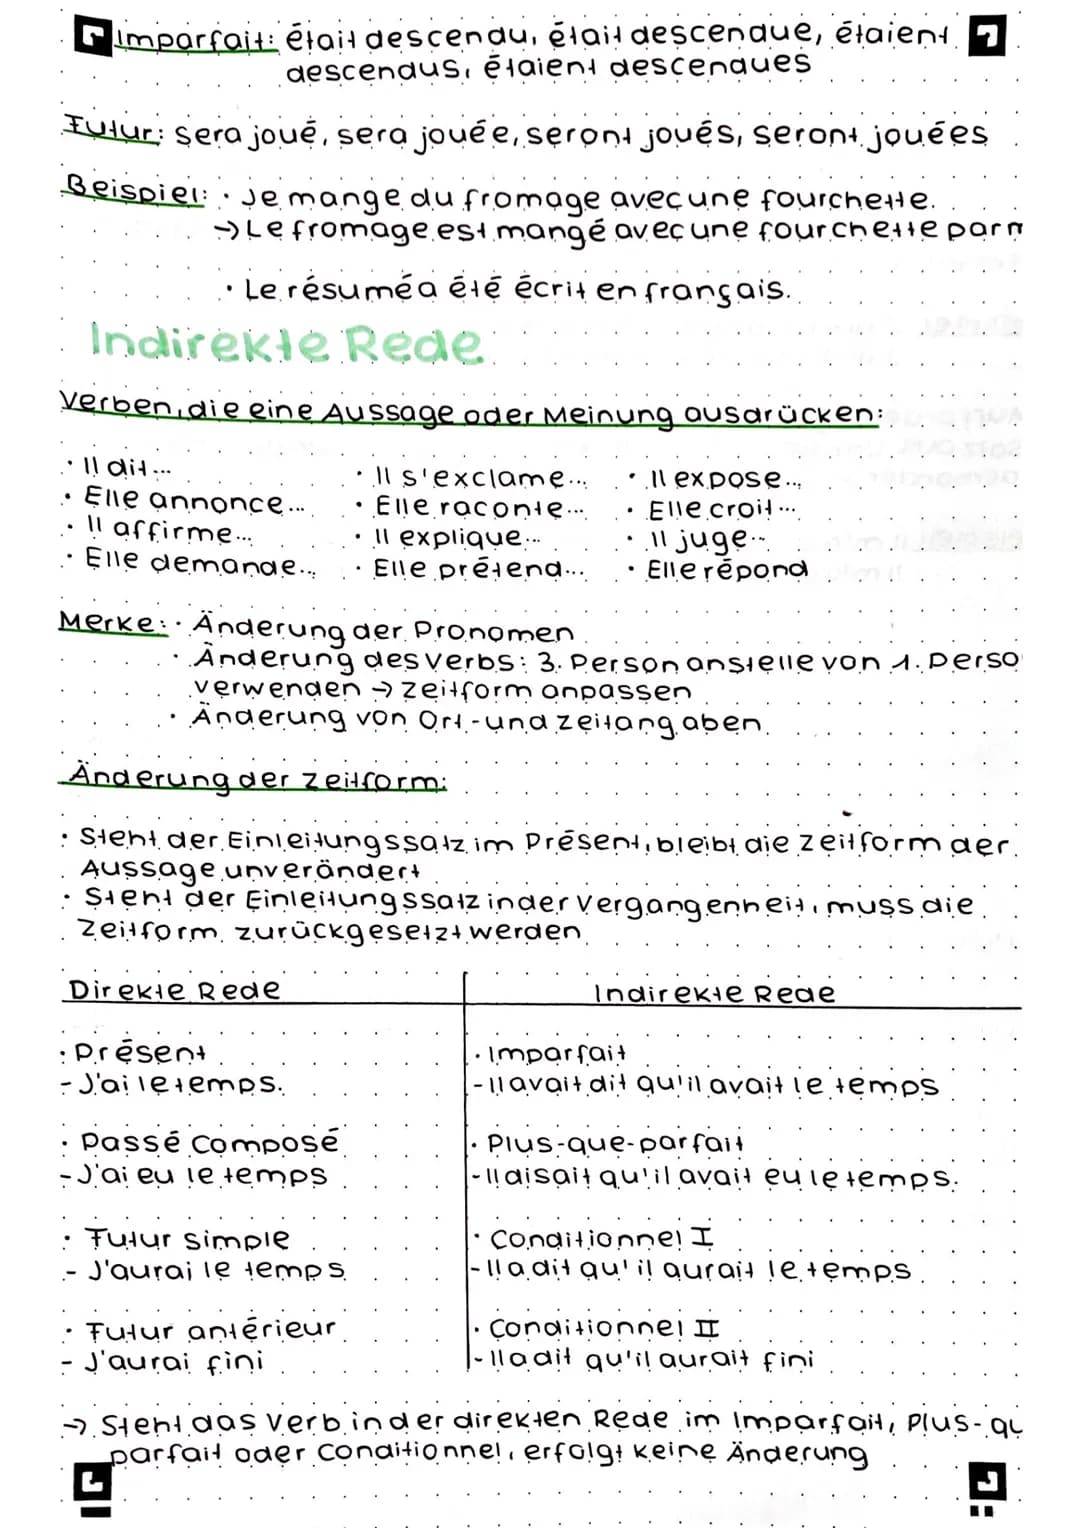 Imparfait: était descendu, était descendue, étaient
descendus, étaient descendues
Futur: sera joué, sera jouée, seront joués, seront jouées
Beispiel: · Je mange du fromage avec une fourchette.
→ Le fromage est mangé avec une fourchette par m
· Le résumé a été écrit en français.
Indirekte Rede
Verben, die eine Aussage oder Meinung ausdrücken:
· Il dit... · Il s'exclame... · Il expose...
· Elle annonce... · Elle raconte... · Elle croit...
· Il affirme... · Il explique... · Il juge...
· Elle demande... · Elle prétend... · Elle répond
Merke: · Änderung der Pronomen
· Änderung des Verbs: 3. Person anstelle von 1. Perso
verwenden → Zeitform anpassen
· Änderung von Ort- und Zeitangaben
Änderung der Zeitform:
· Steht der Einleitungssatz im Présent, bleibt die Zeitform der
Aussage unverändert
· Steht der Einleitungssatz in der Vergangenheit, muss die
Zeitform zurückgesetzt werden
Direkte Rede Indirekte Rede
· Présent · Imparfait
- J'ai le temps. - Il avait dit qu'il avait le temps
· Passé Composé · Plus-que-parfait
- J'ai eu le temps - Il disait qu'il avait eu le temps.
· Futur simple · Conditionnel I
- J'aurai le temps - Il a dit qu'il aurait le temps
· Futur antérieur · Conditionnel II
- J'aurai fini - Il a dit qu'il aurait fini
→ Steht das Verb in der direkten Rede im Imparfait, Plus-qu
parfait oder Conditionnel, erfolgt keine Änderung